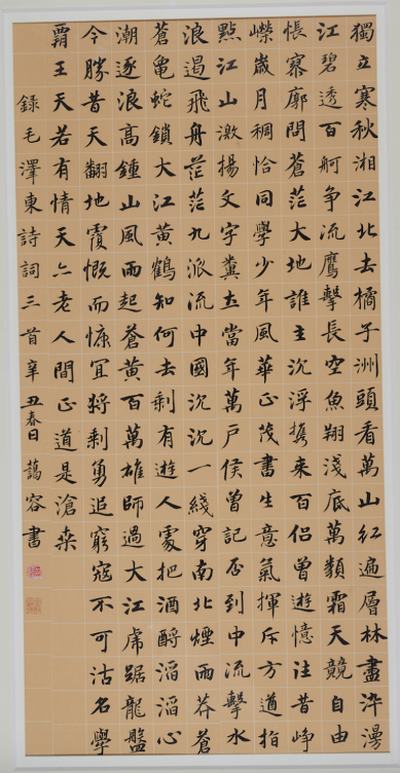 獨立寒秋湘江北去橘子洲頭看萬山紅遍層林盡染漫
江碧透百舸争流鷹擊長空魚翔淺底萬類霜天競自由
悵寥廓問蒼茫大地誰主沉浮攜來百侣曾遊憶往昔崢
嶸歲月稠恰同學少年風華正茂書生意氣揮斥方遒指
點江山激揚文字糞土當年萬户侯曾記否到中流擊水
浪遏飛舟茫茫九派流中國沉沉一綫穿南北煙雨莽蒼
蒼龜蛇鎖大江黄鶴知何去剩有遊人處把酒酹滔滔心
潮逐浪高鍾山風雨起蒼黄百萬雄師過大江虎踞龍盤
今勝昔天翻地覆慨而慷宜將剩勇追窮寇不可沽名學
霸王天若有情天亦老人間正道是滄桑
録毛澤東詩詞三首辛丑春日藹容書